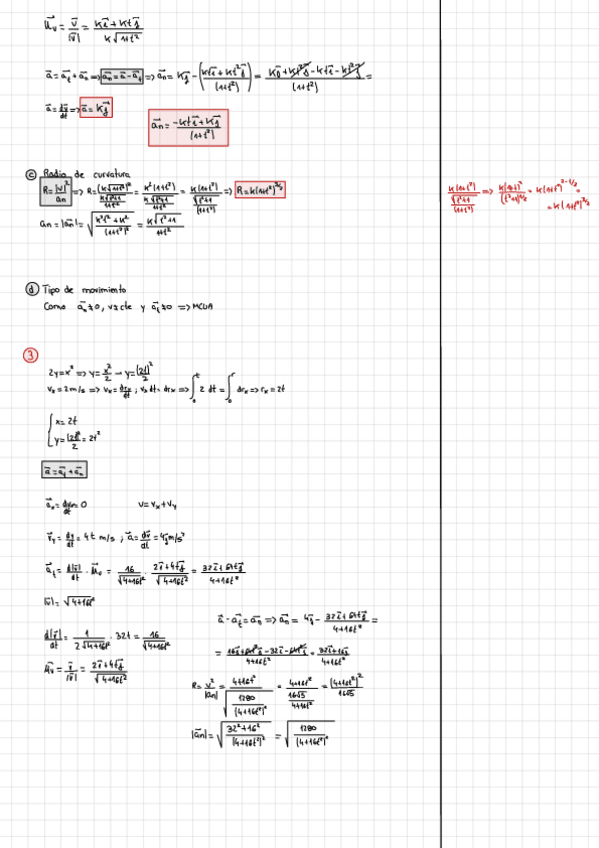 u⃗_v = v⃗/|v⃗| = (k i⃗ + kt j⃗)/(k√(1+t²))
a⃗ = a⃗_t + a⃗_n => a⃗_n = a⃗ - a⃗_t => a⃗_n = k j⃗ - ((kt i⃗ + kt² j⃗)/(1+t²)) = (k j⃗ + kt² j⃗ - kt i⃗ - kt² j⃗)/(1+t²) =
a⃗ = dv⃗/dt => a⃗ = k j⃗
a⃗_n = (-kt i⃗ + k j⃗)/(1+t²)
c Radio de curvatura
R = |v|²/an => R = (k√(1+t²))²/(k√(t²+1)/(1+t²)) = k²(1+t²)/(k√(t²+1)/(1+t²)) = k(1+t²)/(√(t²+1)/(1+t²)) => R = k(1+t²)^(3/2)
k(1+t²)/(√(t²+1)/(1+t²)) => k(1+t²)²/(t²+1)^(1/2) = k(1+t²)^(2-1/2) =
= k(1+t²)^(3/2)
an = |a⃗n| = √((k²t²+k²)/(1+t²)²) = k√(t²+1)/(1+t²)
d Tipo de movimiento
Como a⃗_n ≠ 0, v≠cte y a⃗_t ≠ 0 => MCUA
3
2y = x² => y = x²/2 → y = (2t)²/2
v_x = 2 m/s => v_x = dr_x/dt ; v_x dt = dr_x => ∫₀ᵗ 2 dt = ∫₀ʳ dr_x => r_x = 2t
x = 2t
y = (2t)²/2 = 2t²
a⃗ = a⃗_t + a⃗_n
a⃗_x = dv_x/dt = 0 v = v_x + v_y
v⃗_y = dy/dt = 4t m/s ; a⃗ = dv⃗/dt = 4 j⃗ m/s²
a⃗_t = d|v⃗|/dt · u⃗_v = 16/√(4+16t²) · (2 i⃗ + 4t j⃗)/√(4+16t²) = (32 i⃗ + 64t j⃗)/(4+16t²)
|v⃗| = √(4+16t²)
a⃗ - a⃗_t = a⃗_n => a⃗_n = 4 j⃗ - (32 i⃗ + 64t j⃗)/(4+16t²) =
d|v⃗|/dt = 1/(2√(4+16t²)) · 32t = 16/√(4+16t²)
= (16 j⃗ + 64t² j⃗ - 32 i⃗ - 64t² j⃗)/(4+16t²) = (32 i⃗ + 16 j⃗)/(4+16t²)
u⃗_v = v⃗/|v⃗| = (2 i⃗ + 4t j⃗)/√(4+16t²)
R = v²/|an| = (4+16t²)/√(1280/(4+16t²)²) = (4+16t²)/(16√5/(4+16t²)) = (4+16t²)²/(16√5)
|a⃗n| = √((32²+16²)/(4+16t²)²) = √(1280/(4+16t²)²)